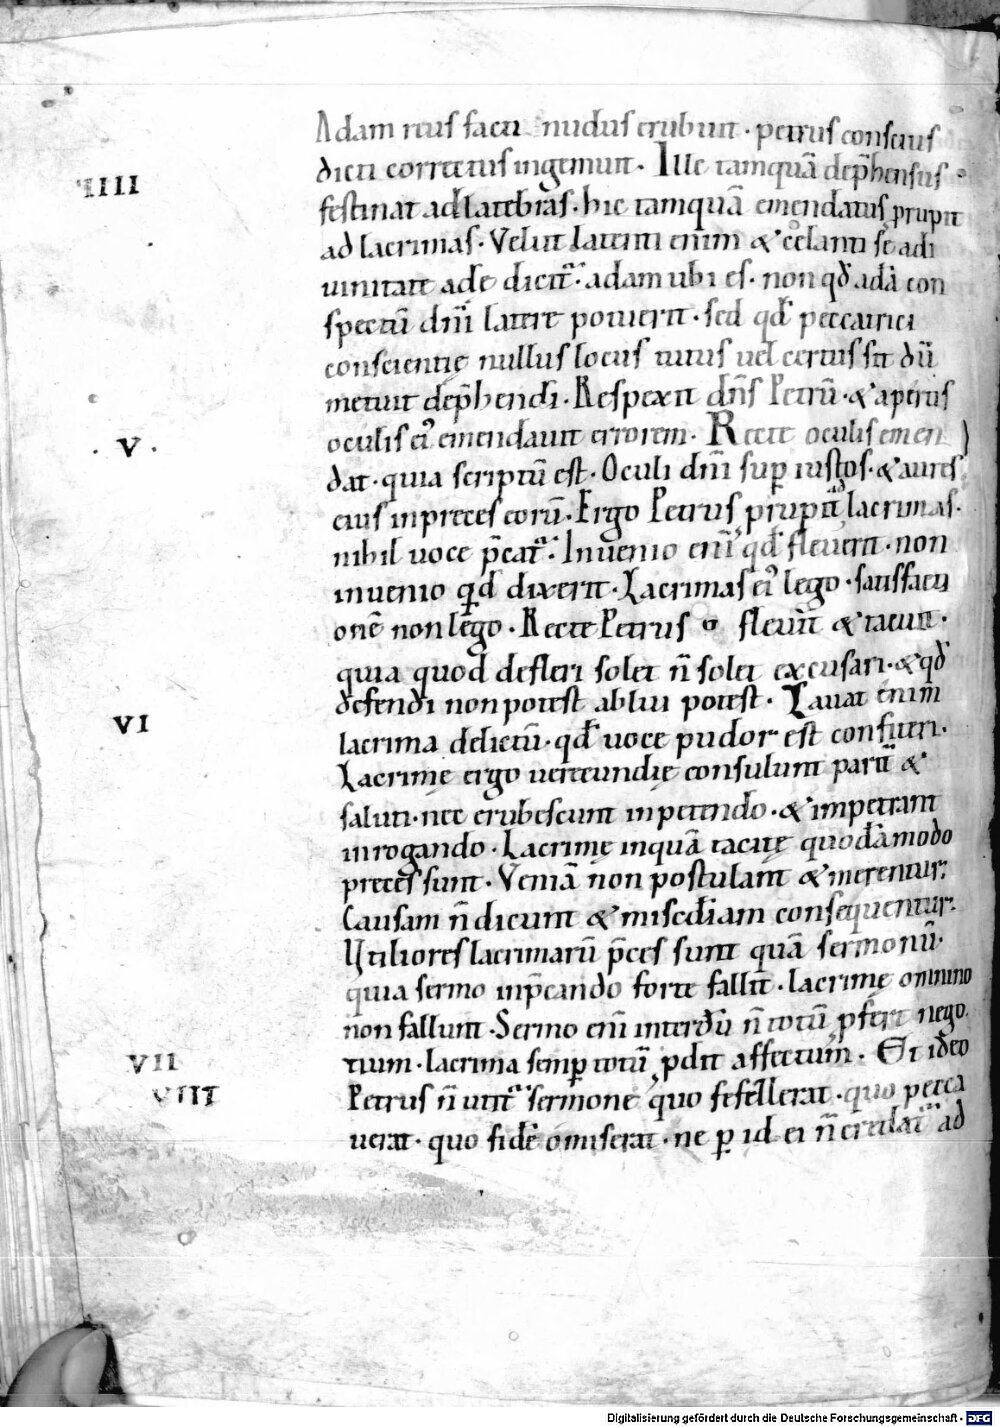 Adam reus facti nudus erubuit · petrus conscius
dicti correctus ingemuit · Ille tamquā dep̄hensus
IIII
festinat ad latebras · hic tamquā emendatus prupit
ad lacrimas · Velut latenti enim & cęlanti sę adi
uinitate adę dicit᷑ · adam ubi es · non qđ adā con
spectū dn̄i latere potuerit · sed qđ peccatrici
conscientię nullus locus tutus uel certus sit dū
metuit dep̄hendi · Respexit dn̄s Petrū · & apertis
V
oculis ei᾿ emendauit errorem · Recte oculis emen
dat · quia scriptū est · Oculi dn̄i sup̱ iustos · & aures
eius in preces eorū · Ergo Petrus prupit ad lacrimas ·
nihil uoce p̄cat᷑ · Inuenio eni᷑ qđ fleuerit · non
inuenio qđ dixerit · Lacrimas ei᾿ lego · satisfacti
onē non lego · Recte Petrus fleuit & tacuit ·
quia quod defleri solet n̄ solet excusari · & qđ
defendi non potest ablui potest · Lauat enim
VI
lacrima delictū · qđ uoce pudor est confiteri ·
Lacrimę ergo uerecundię consulunt parit᷑ &
saluti · nec erubescunt in petendo · & impetrant
in rogando · Lacrimę inquā tacitę quodāmodo
preces sunt · Veniā non postulant & merentur ·
Causam n̄ dicunt & misc̄diam consequentur ·
Utiliores lacrimarū p̄ces sunt quā sermonū ·
quia sermo in p̄cando forte fallit · lacrimę omnino
non fallunt · Sermo eni᷑ interdū n̄ totū p̱fert nego
VII
tium · lacrima semp̱ totū p̱dit affectum · Et ideo
VIII
Petrus n̄ utit᷑ sermone quo fefellerat · quo pecca
uerat · quo fidē omiserat · ne p̱ id ei n̄ credat᷑ ad
Digitalisierung gefördert durch die Deutsche Forschungsgemeinschaft - DFG